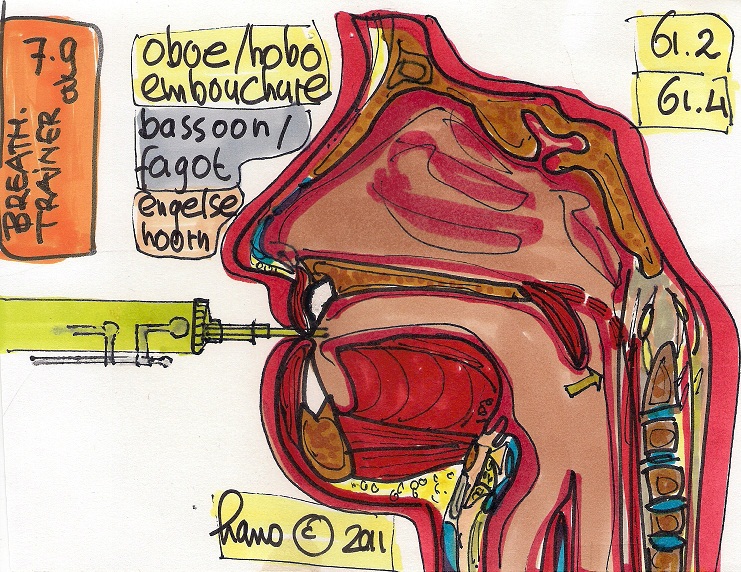 BREATH.
TRAINER
7.9
oboe/hobo
embouchure
bassoon/
fagot
engelse
hoorn
61.2
61.4
hano © 2011